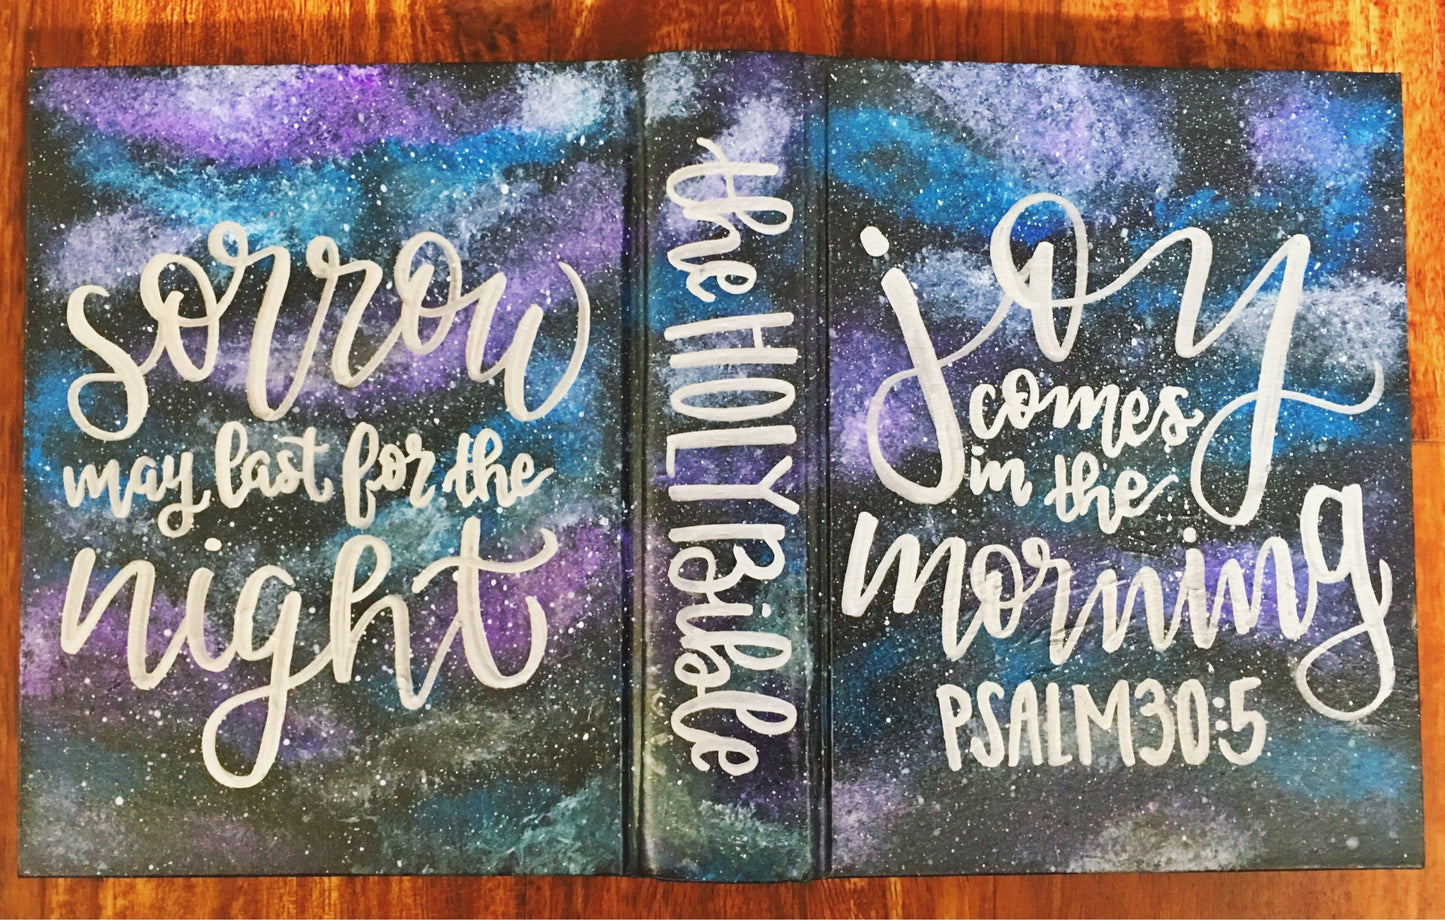 sorrow
may last for the
night
the HOLY Bible
joy
comes
in the
morning
PSALM 30:5